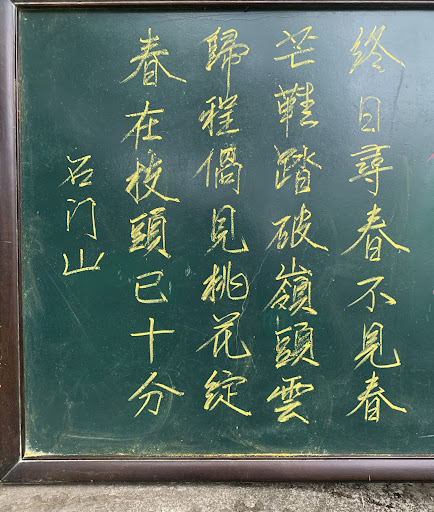 終日尋春不見春
芒鞋踏破嶺頭雲
歸程偶見桃花綻
春在枝頭已十分
石门山